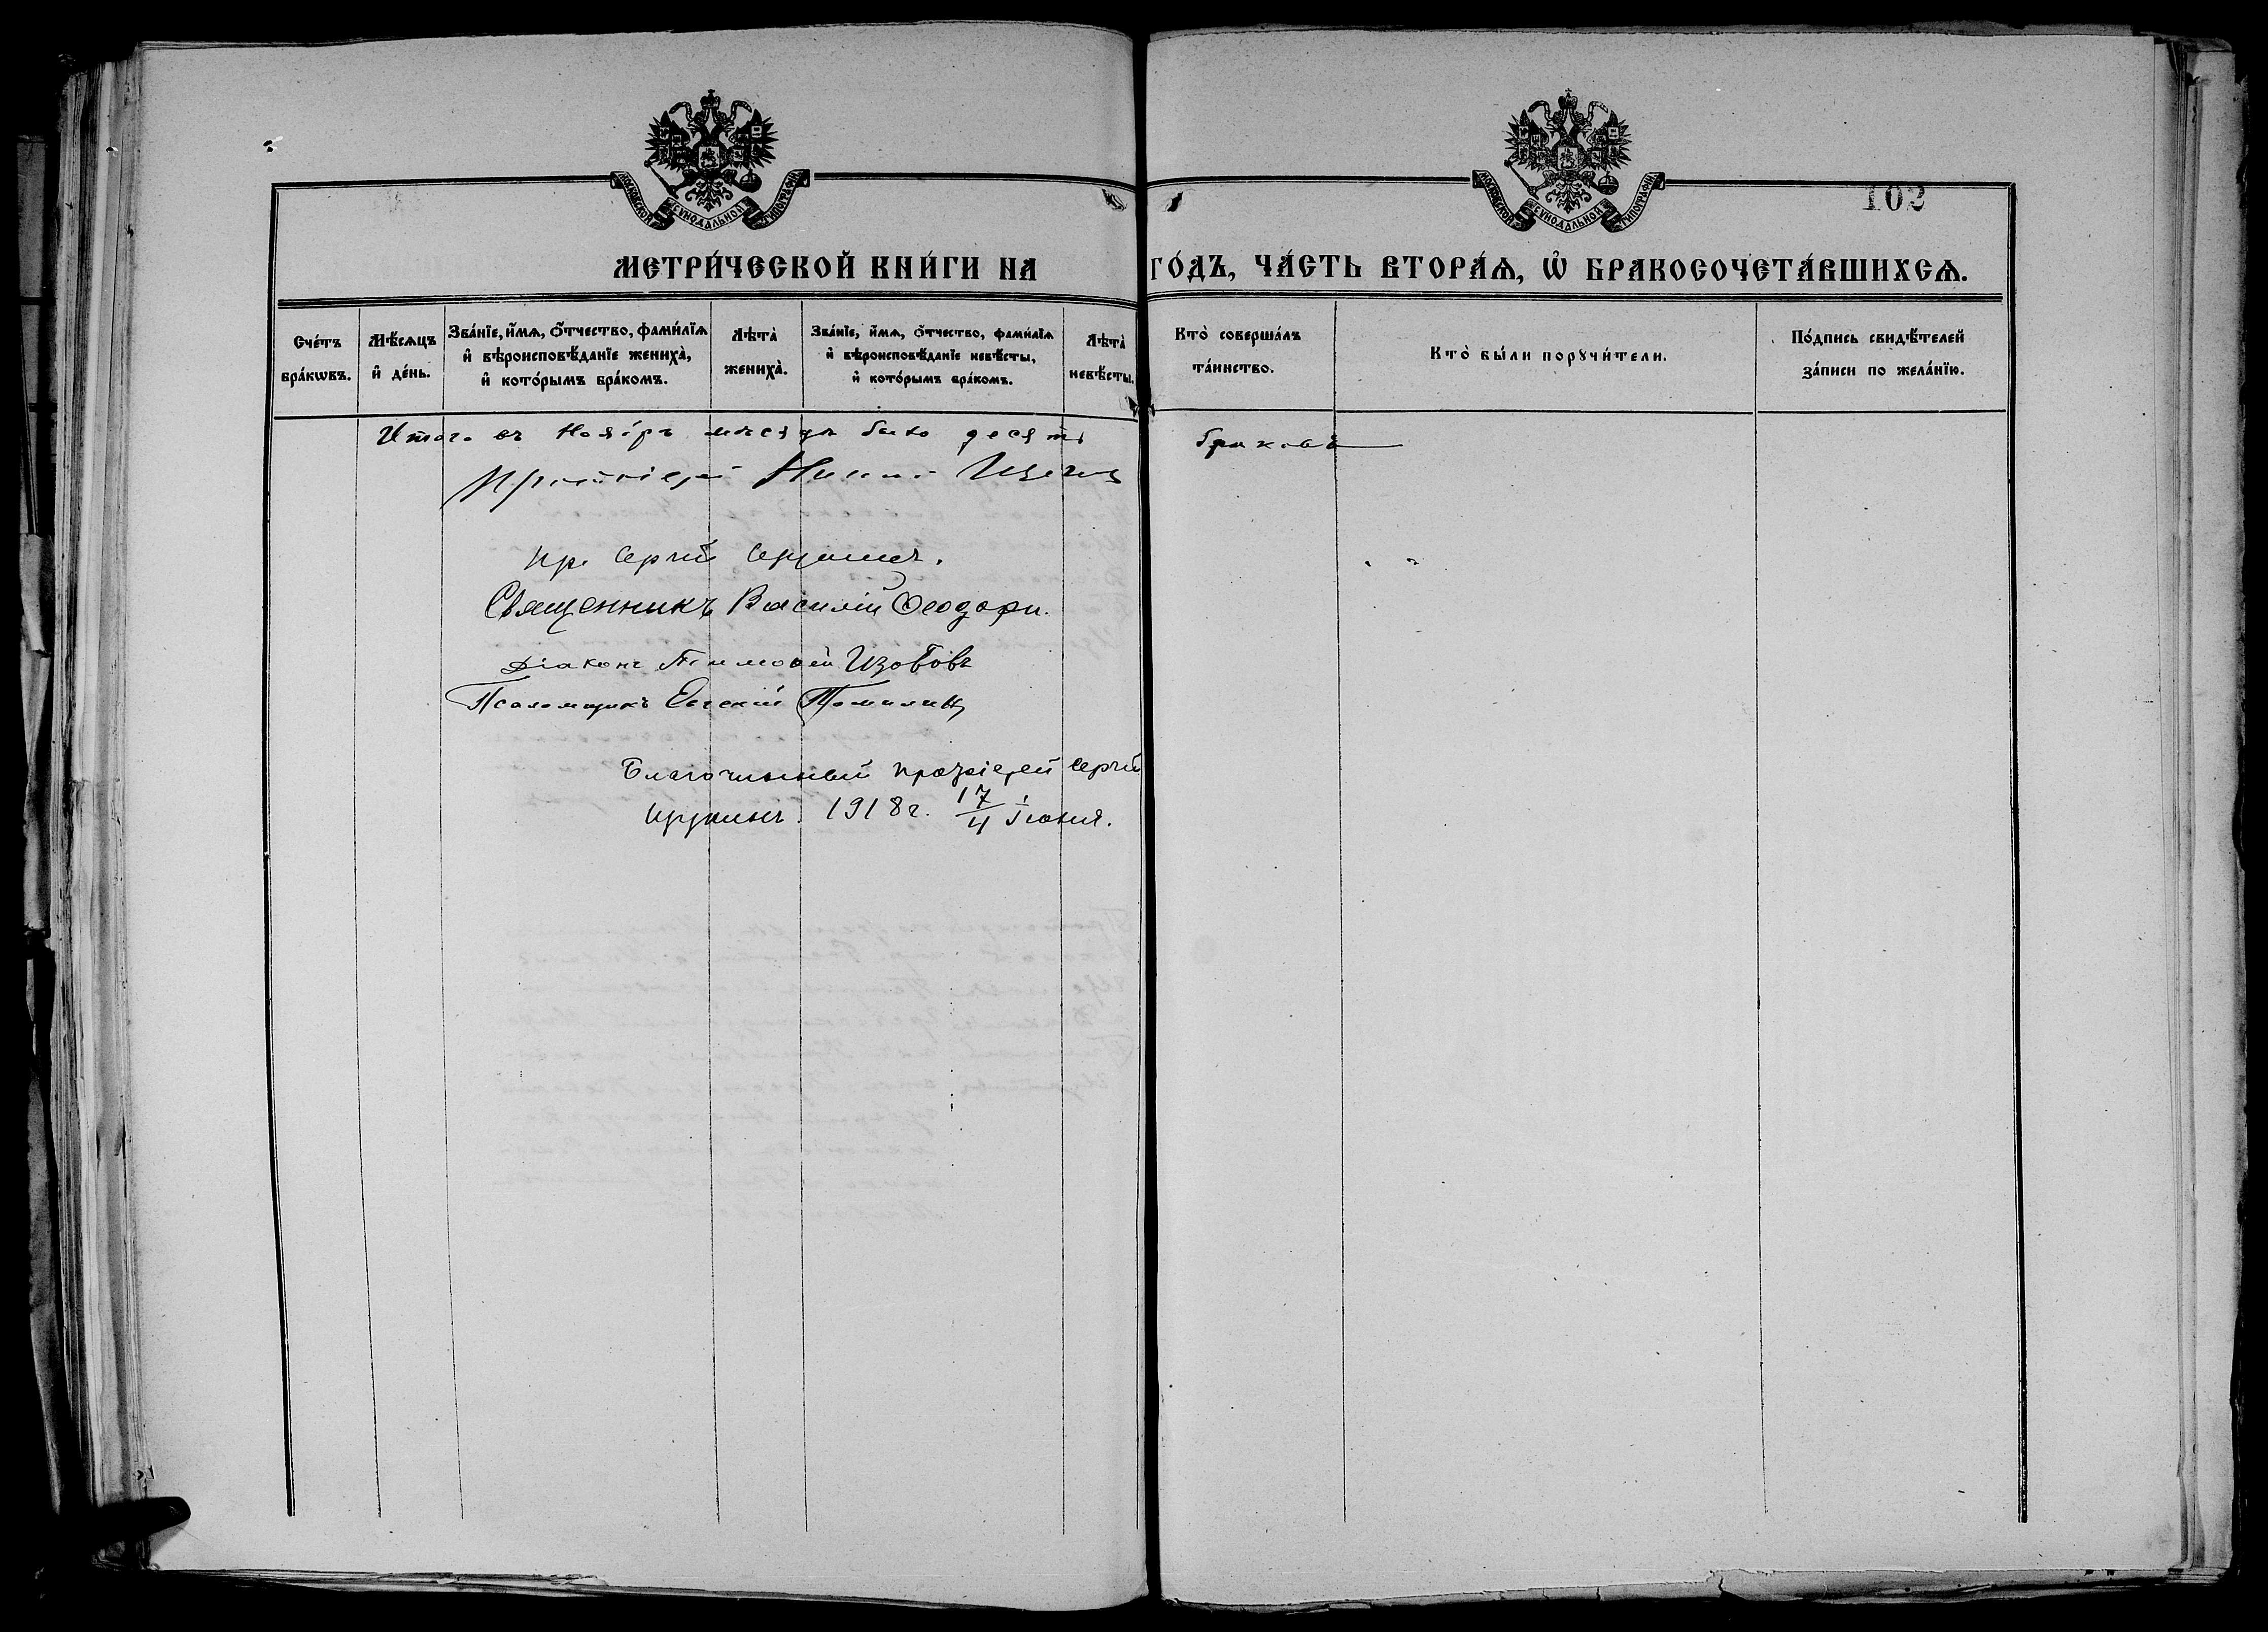 МОСКОВСКОЙ СѴНОДАЛЬНОЙ ТИПОГРАФІИ
МОСКОВСКОЙ СѴНОДАЛЬНОЙ ТИПОГРАФІИ
102
МЕТРИ́ЧЕСКОЙ КНИ́ГИ НА ГО́ДЪ, ЧА́СТЬ ВТОРА́Ѧ, Ѡ҆ БРАКОСОЧЕТА́ВШИХСѦ.
Сче́тъ бра́кѡвъ.
Мѣ́сѧцъ и҆ де́нь.
Зва́нїе, и҆́мѧ, о҆́тчество, фами́лїѧ и҆ вѣроисповѣ́данїе жениха̀, и҆ кото́рымъ бра́комъ.
Лѣта̀ жениха̀.
Зва́нїе, и҆́мѧ, о҆́тчество, фами́лїѧ и҆ вѣроисповѣ́данїе невѣ́сты, и҆ кото́рымъ бра́комъ.
Лѣта̀ невѣ́сты.
Кто̀ соверша́лъ та́инство.
Кто̀ бы́ли порꙋчи́тели.
По́дпись свидѣ́телей за́писи по жела́нїю.
Итого въ Ноябрѣ мѣсяцѣ было десять браковъ
Протоіерей
пр. Сергій
Священникъ Василій
Діаконъ Тимоѳей Изотовъ
Псаломщикъ Томилинъ
Благочинный протоіерей Сергій
1918 г. 17/4 іюня.